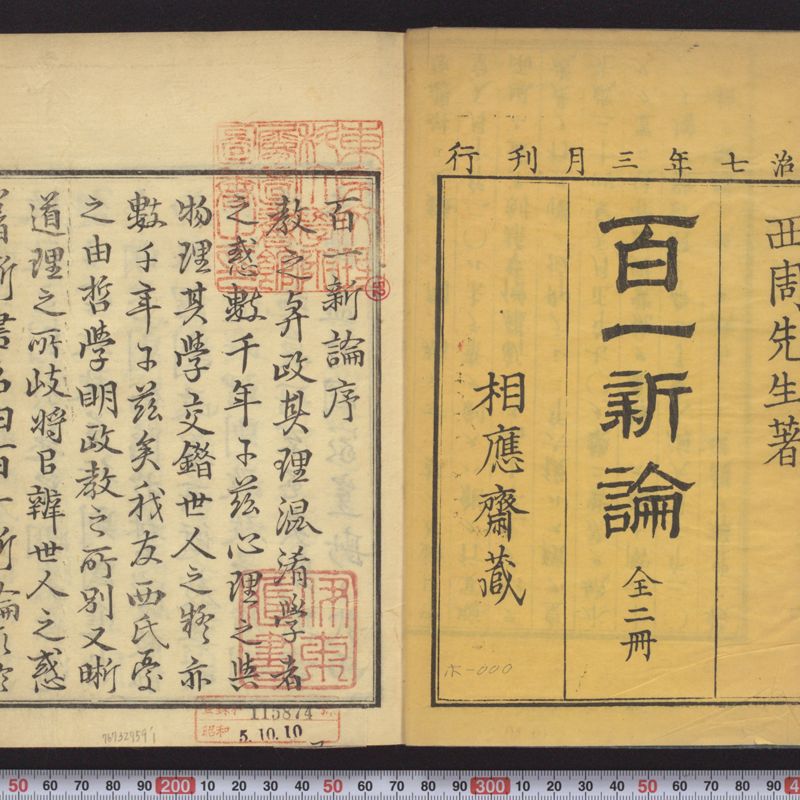 治七年三月刊行
西周先生著
百一新論 全二冊
相應齋藏
百一新論序
教之與政其理混淆學者
之惑數千年于茲心理之與
物理其學交錯世人之疑亦
數千年于茲矣我友西氏憂
之由哲學明政教之所別又晰
道理之所歧將以辨世人之惑
著新書名曰百一新論
115874
昭和 5.10.10
50 60 70 80 90 200 10 20 30 40 50 60 70 80 90 300 10 20 30 40 50 60 70 80 90